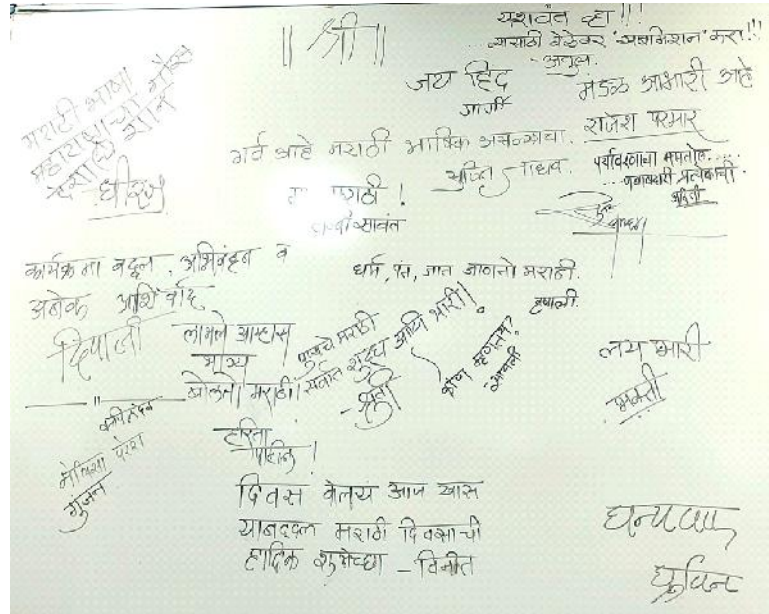 || श्री ||
यशवंत व्हा !!!
मराठी बेडेकर करा!!
- अतुल.
जय हिंद
गार्गी
मंडळ आभारी आहे
राजेश परमार
मराठी भाषा
महाराष्ट्राचा गौरव
देशाची शान
धीरज
गर्व आहे मराठी भाषिक असल्याचा.
जाधव.
पर्यावरणाचा समतोल...
...जबाबदारी प्रत्येकाची
अदिती
मराठी !
सावंत
कार्यक्रमा बद्दल, अभिनंदन व
अनेक आशिर्वाद
दिपाली
धर्म, पंत, जात जाणतो मराठी.
रुपाली.
लाभले आम्हास
भाग्य
बोलतो मराठी!
मराठी
सर्वात शुद्ध आणि भारी!
- श्रुती
कोण म्हणतय?
लय भारी
भक्ती
हरिता
पाटील !
गुंजन
दिवस वेलय आज खास
याबद्दल मराठी दिवसाची
हार्दिक शुभेच्छा - विनीत
धन्यवाद
ध्रुविन